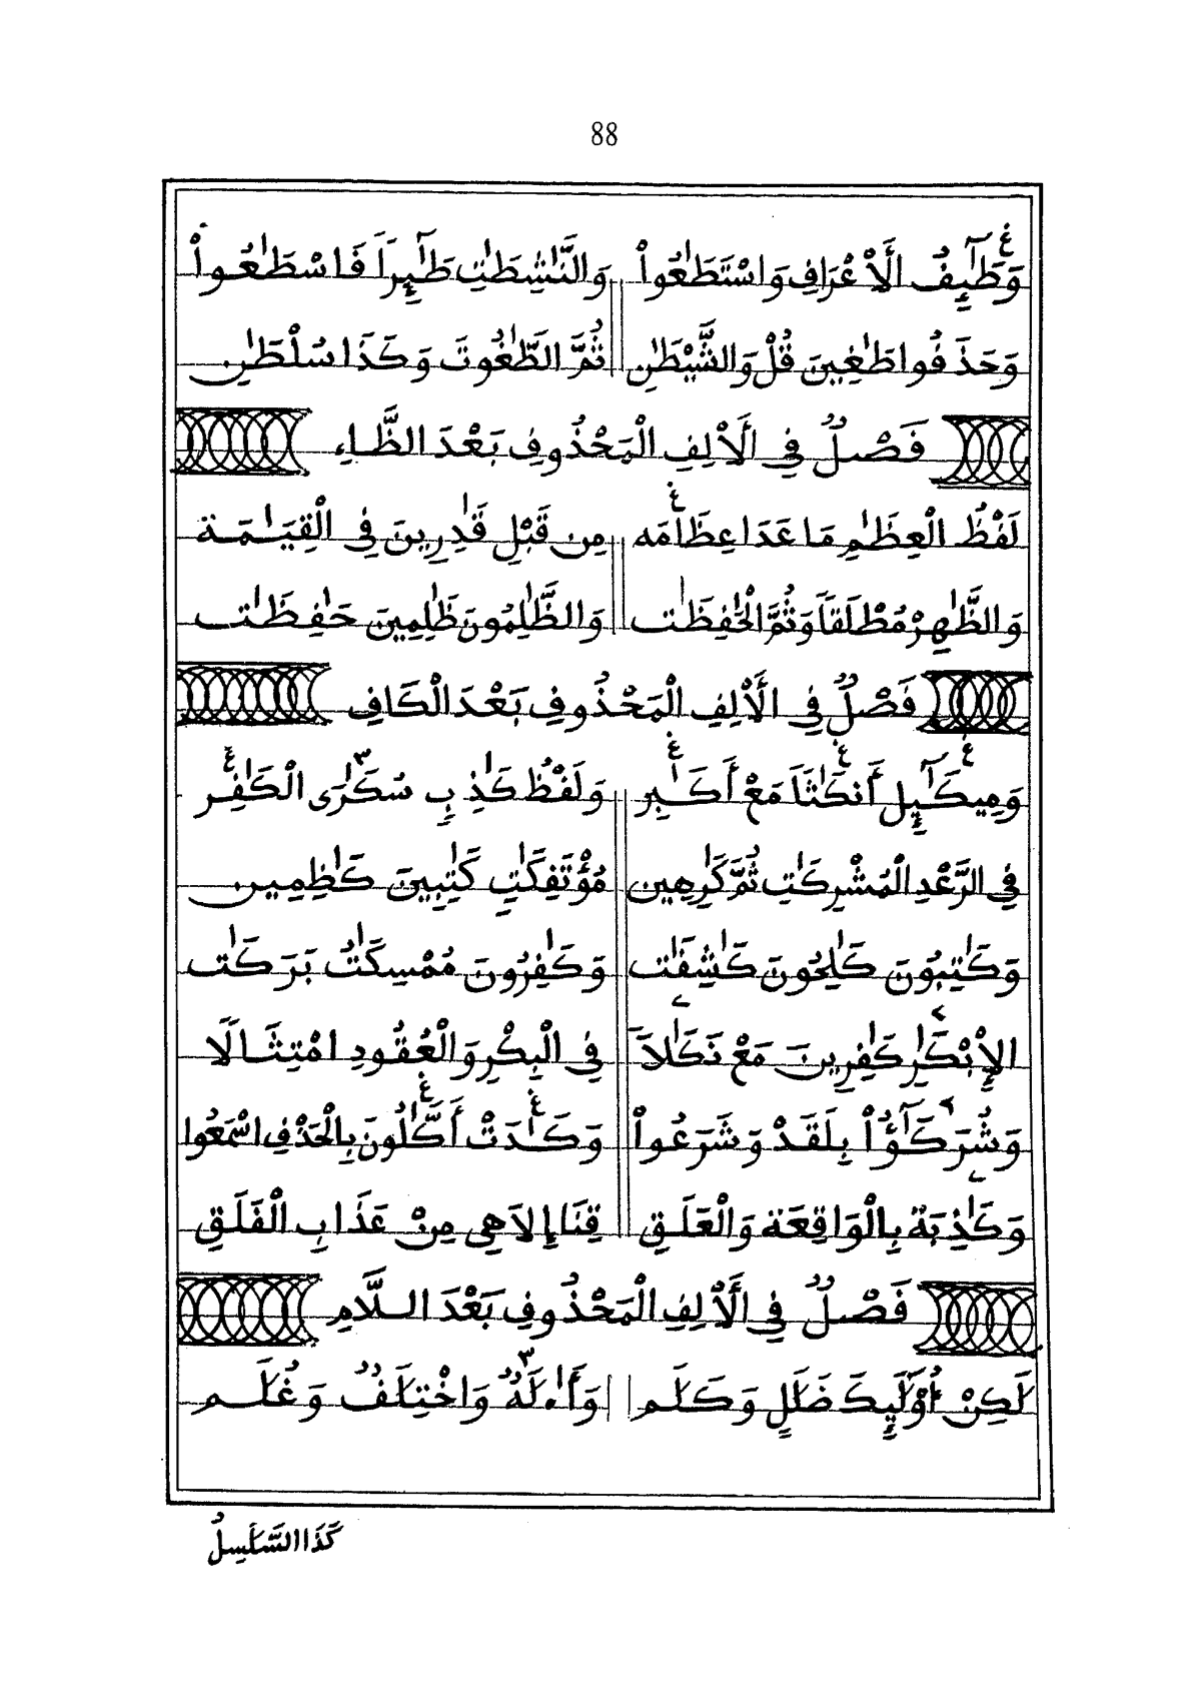 88
وَطَٰٓئِفُ الَاعْرَافِ وَاسْتَطَٰعُواْ وَالنَّٰشِطَٰتِ طَٰٓئِراً فَاسْطَٰعُواْ
وَحَذَفُوا طَٰغِينَ قُلْ وَالشَّيْطَٰنِ ثُمَّ الطَّٰغُوتَ وَكَذَا سُلْطَٰنِ
فَصْلٌ فِي الَالِفِ الْمَحْذُوفِ بَعْدَ الظَّاءِ
لَفْظُ الْعِظَٰمِ مَا عَدَا عِظَامَه مِن قَبْلِ قَٰدِرِينَ فِي الْقِيَٰمَة
وَالظَّٰهِرُ مُطْلَقاً وَثُمَّ الْحَٰفِظَٰت وَالظَّٰلِمُونَ ظَٰلِمِينَ حَٰفِظَٰت
فَصْلٌ فِي الَالِفِ الْمَحْذُوفِ بَعْدَ الْكَافِ
وَمِيكَٰٓئِل أَنكَٰثاً مَعْ أَكَٰبِر وَلَفْظُ كَٰذِبٍ سُكَٰرَى الْكَٰفِر
فِي الرَّعْدِ الْمُشْرِكَٰتِ ثُمَّ كَٰرِهِين مُؤْتَفِكَٰتِ كَٰتِبِينَ كَٰظِمِين
وَكَٰتِبُونَ كَٰلِحُونَ كَٰشِفَٰت وَكَٰفِرُونَ مُمْسِكَٰتُ بَرَكَٰت
الِابْكَٰرِ كَٰفِرِينَ مَعْ نَكَٰلاً فِي الْبِكْرِ وَالْعُقُودِ امْتِثَالَا
وَشُرَكَٰٓؤُاْ بِلَقَدْ وَشَرَعُواْ وَكَٰدَتْ أَكَّٰلُونَ بِالْحَذْفِ اسْمَعُوا
وَكَٰذِبَةٌ بِالْوَاقِعَة وَالْعَلَقِ قِنَا إِلَاهِي مِنْ عَذَابِ الْفَلَقِ
فَصْلٌ فِي الَالِفِ الْمَحْذُوفِ بَعْدَ اللَّامِ
لَٰكِنْ أُوْلَٰئِكَ ضَلَٰلٍ وَكَلَٰم وَأَ.لَٰهٌ وَاخْتِلَٰفٌ وَغُلَٰم
كَذَا السَّلَٰسِلُ